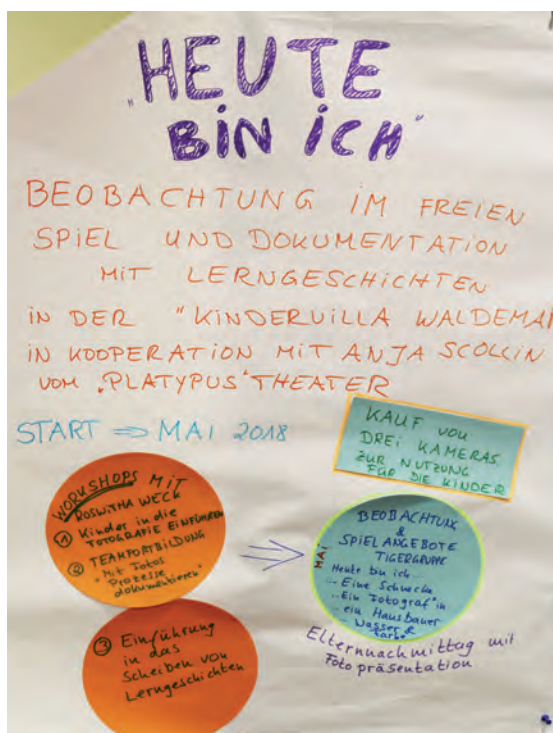 "HEUTE
BIN ICH"
BEOBACHTUNG IM FREIEN
SPIEL UND DOKUMENTATION
MIT LERNGESCHICHTEN
IN DER "KINDERVILLA WALDEMAR
IN KOOPERATION MIT ANJA SCOLLIN
VOM "PLATYPUS" THEATER
START ⇒ MAI 2018
KAUF VON
DREI KAMERAS
ZUR NUTZUNG
FÜR DIE KINDER
WORKSHOPS MIT
ROSWITHA WECK
① Kinder in die
FOTOGRAFIE EINFÜHREN
② TEAMFORTBILDUNG
"Mit Fotos
Prozesse
dokumentieren"
③ Einführung
in das
Scheiben von
Lerngeschichten
MAI
BEOBACHTUNG
&
SPIELANGEBOTE
TIGERGRUPPE
Heute bin ich
... Eine Schnecke
... Ein Fotograf*in
... ein Hausbauer
... Wasser &
Farbe
Elternnachmittag mit
Fotopräsentation